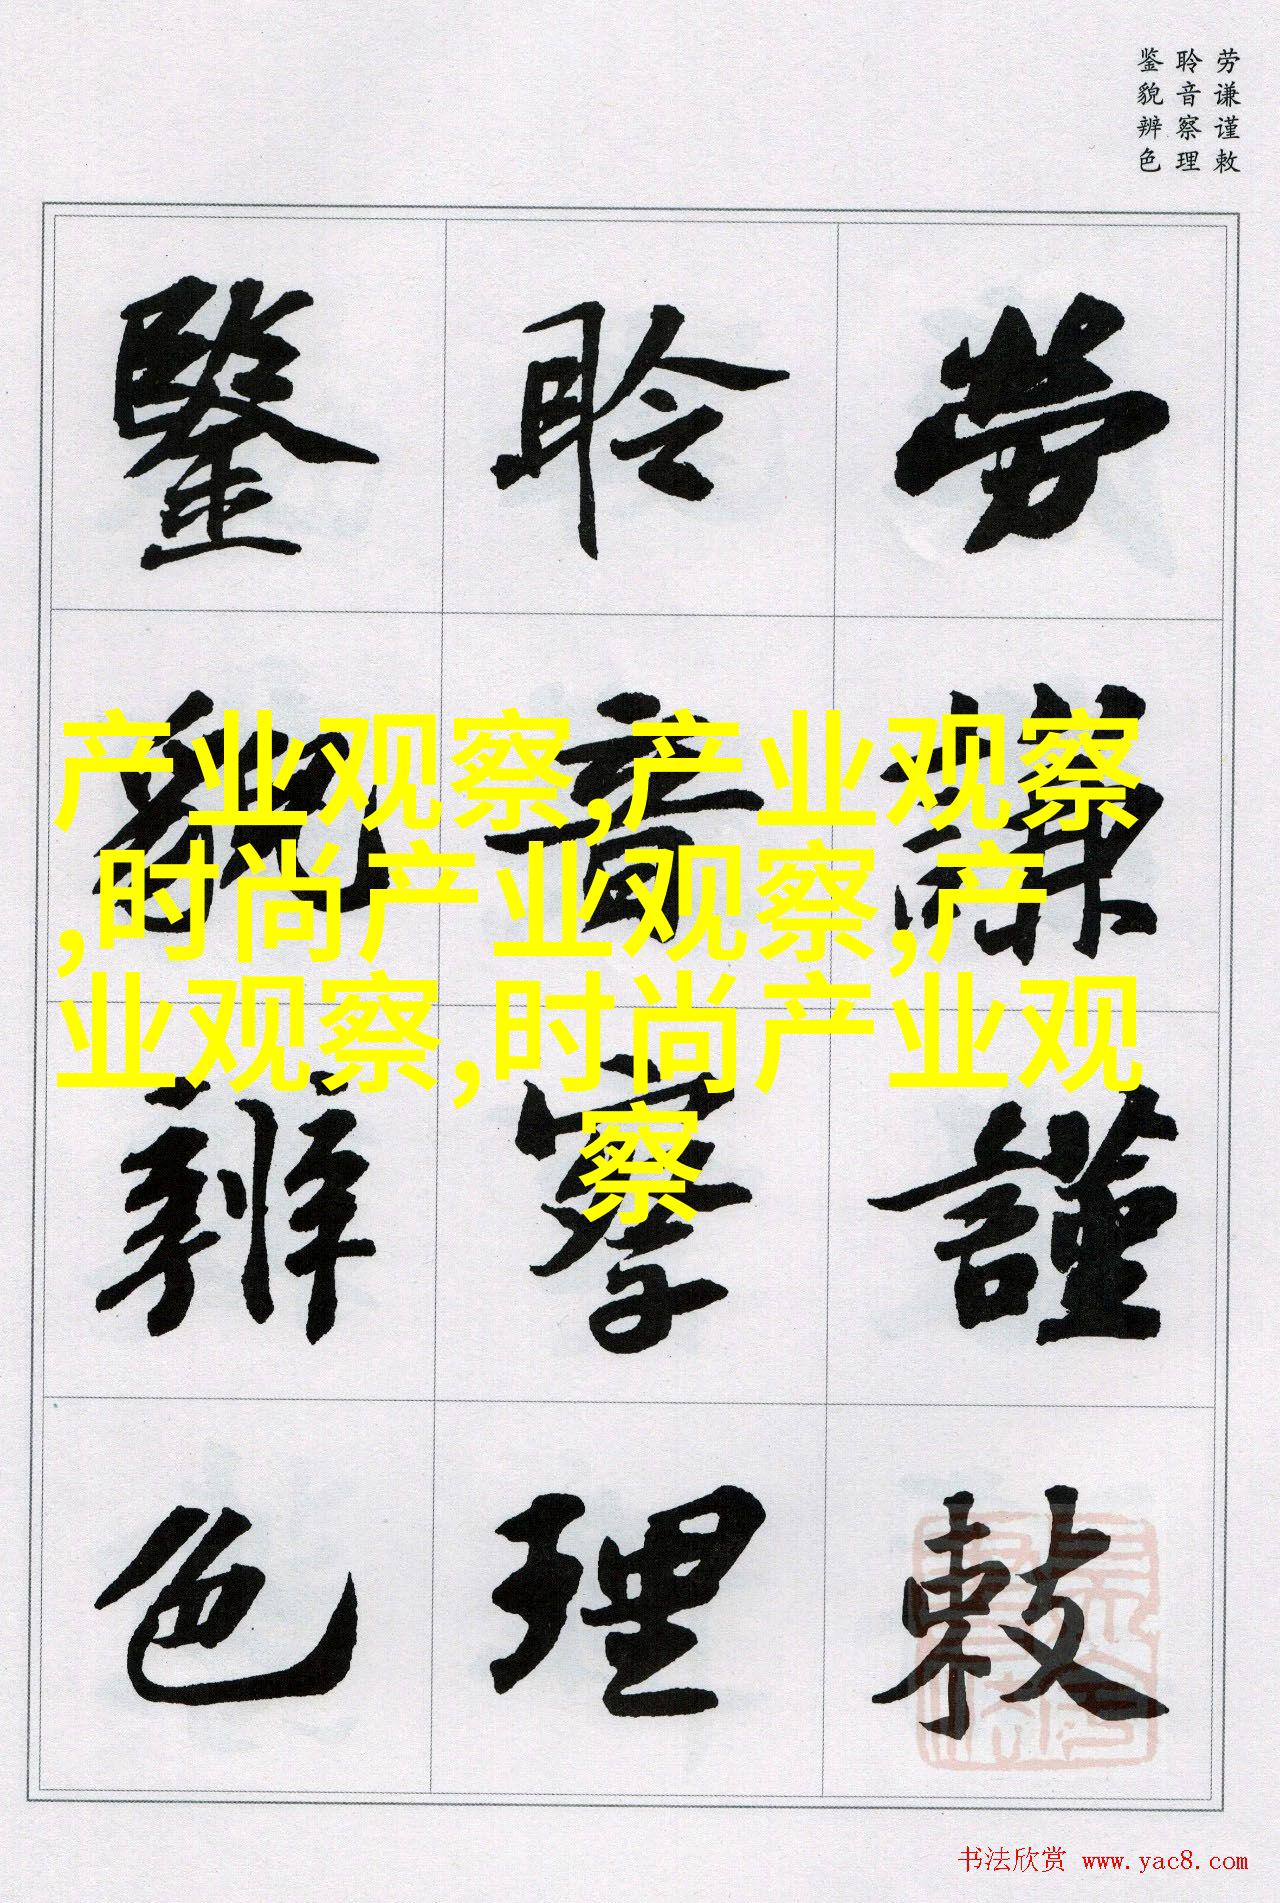 劳谦谨敕
聆音察理
鉴貌辨色
勞謙謹敕
聆音察理
鑒貌辨色
产业观察,产业观察
,时尚产业观察,产
业观察,时尚产业观
察
书法欣赏 www.yac8.com